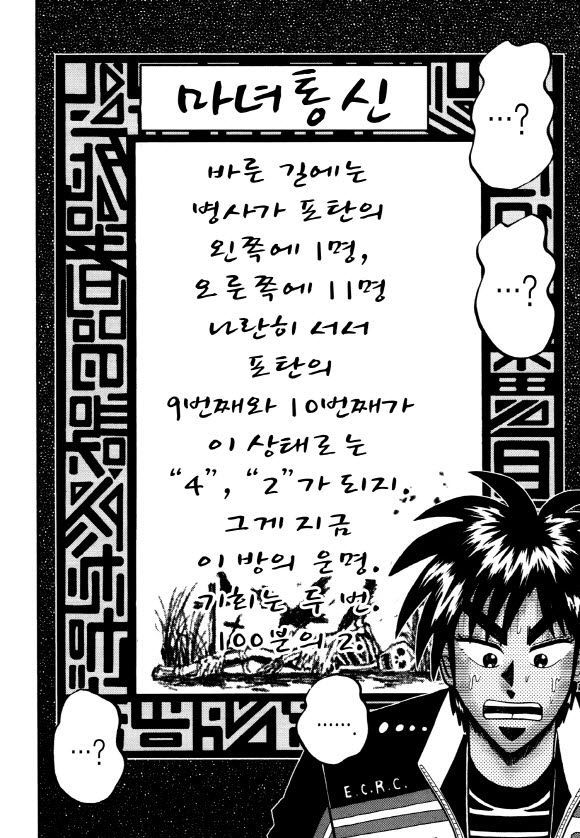 마녀통신
…?
…?
바른 길에는
병사가 포탄의
왼쪽에 1명,
오른쪽에 11명
나란히 서서
포탄의
9번째와 10번째가
이 상태로는
“4”, “2”가 되지
그게 지금
이 방의 운명.
기회는 두 번.
100분의 2.
…….
…?
E.C.R.C.